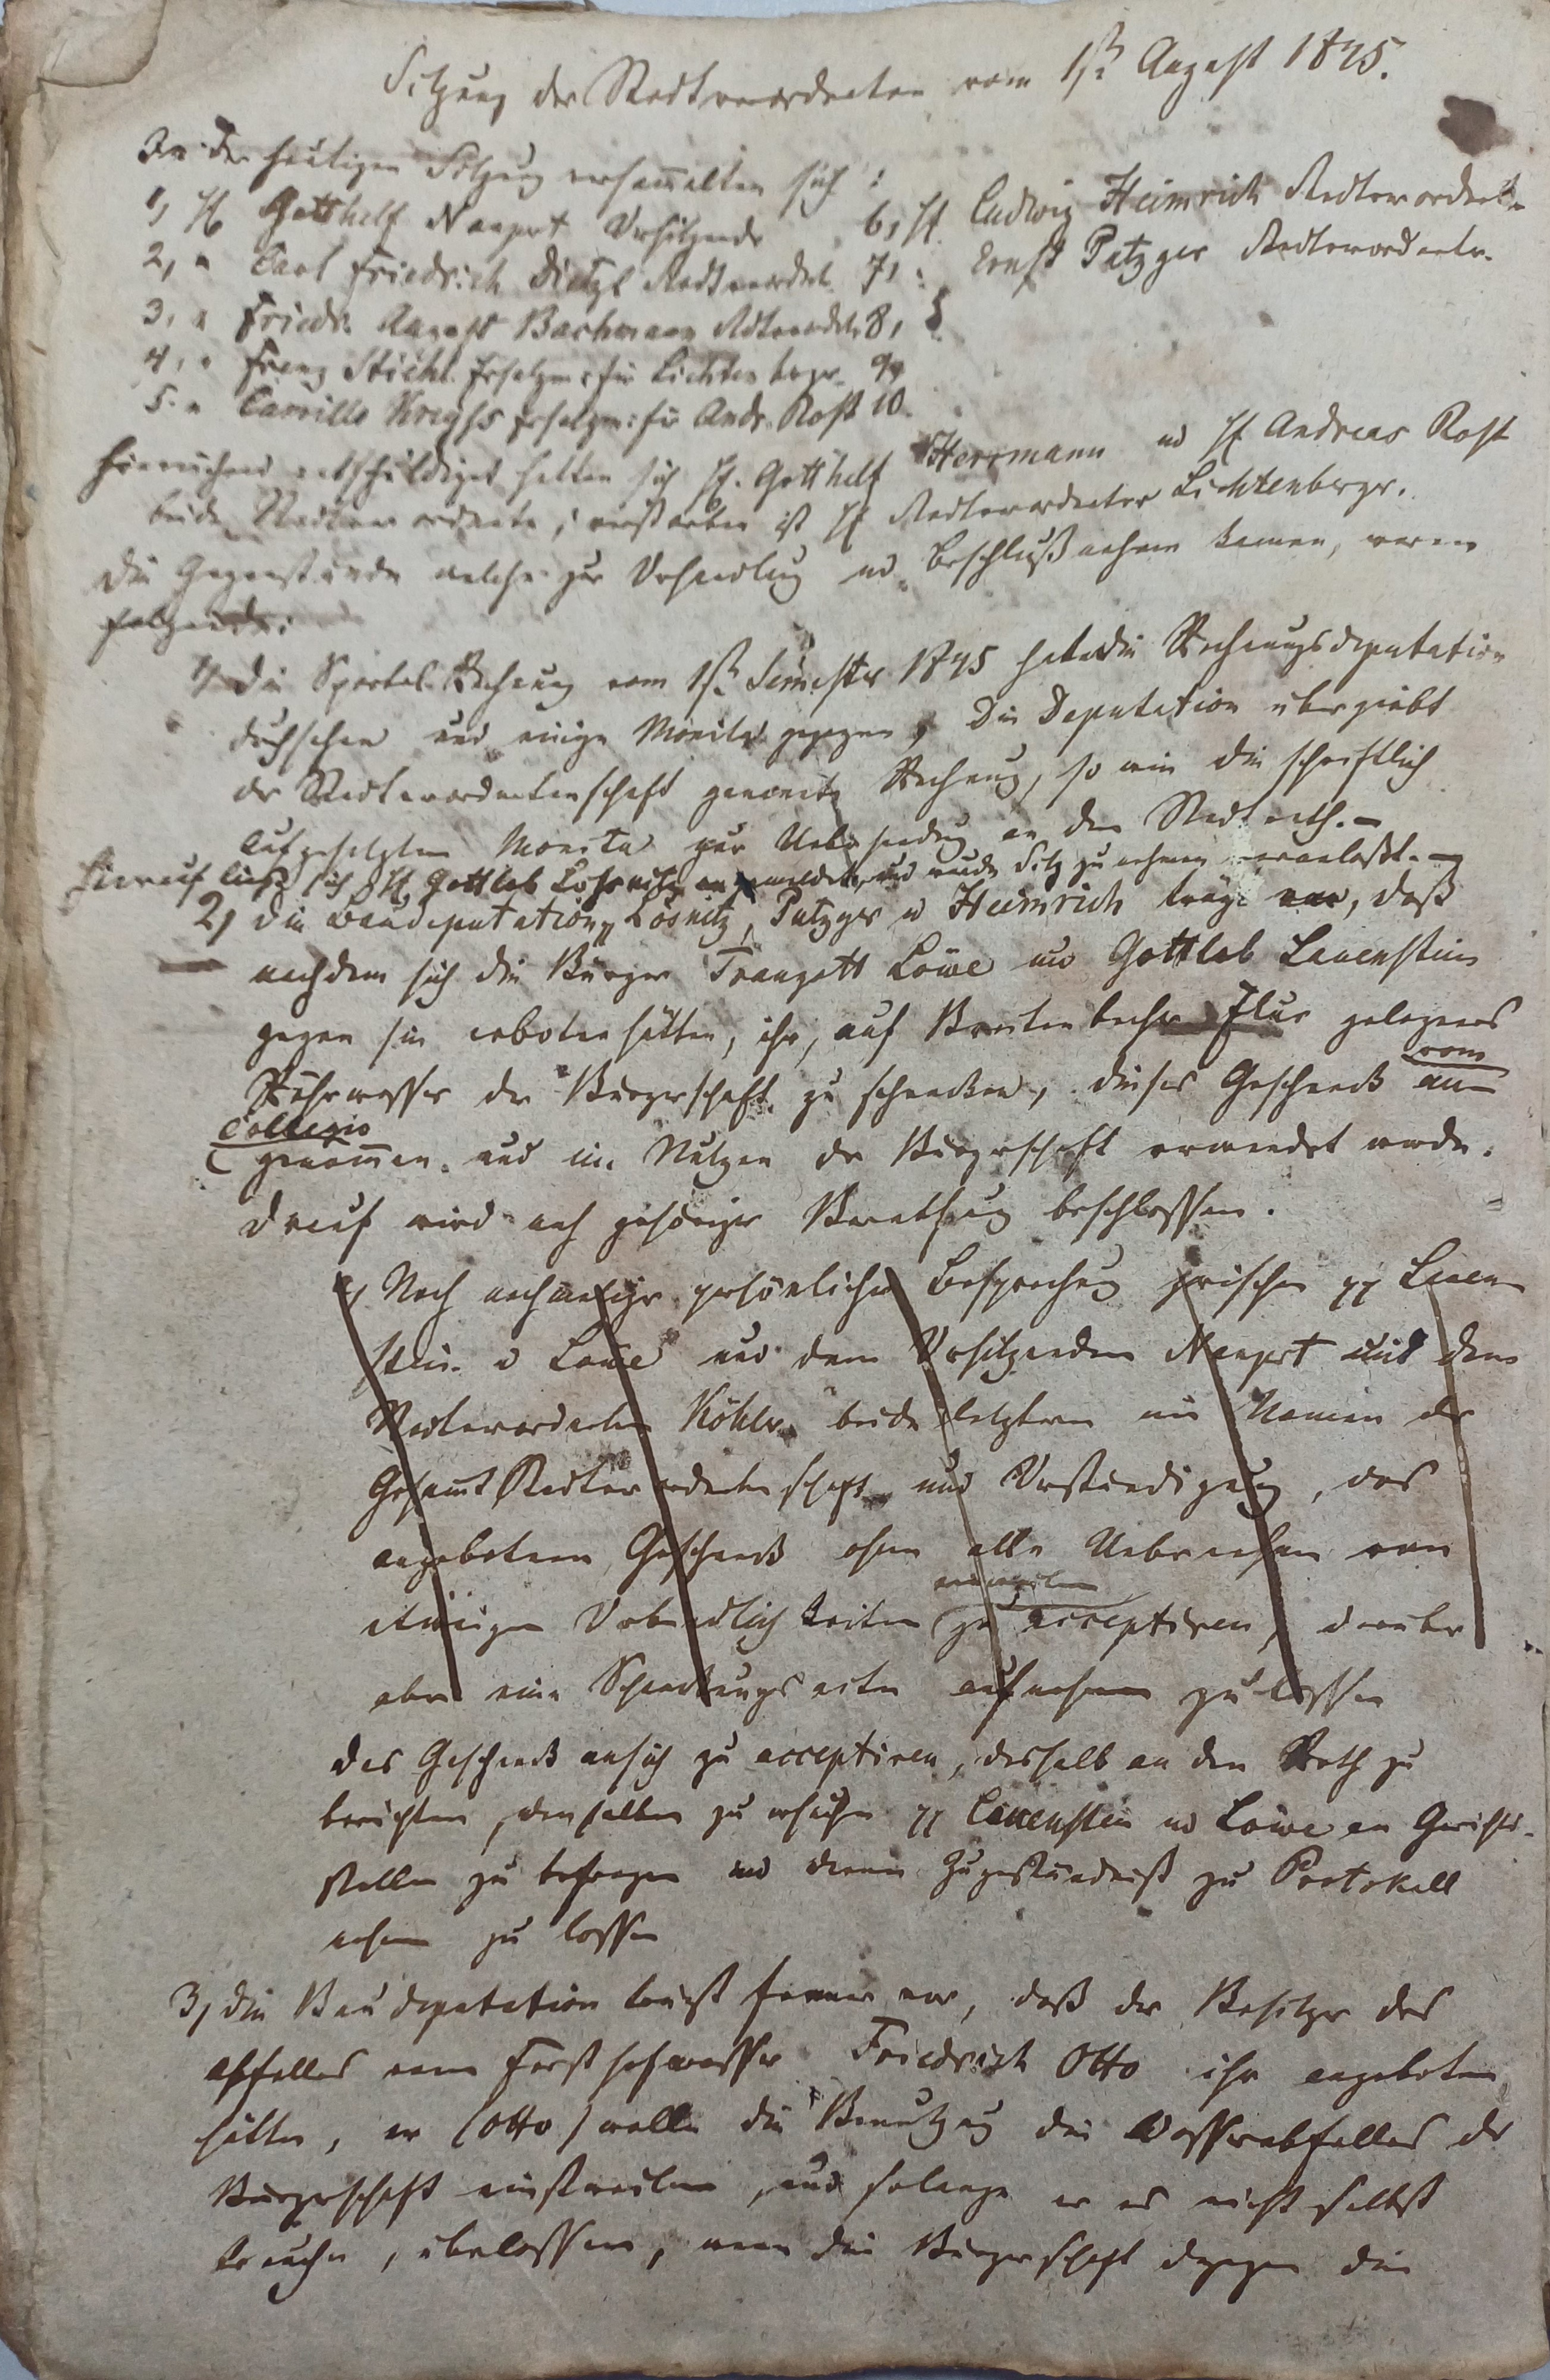 Sitzung der Stadtverordneten vom 1st August 1845.
In der heutigen Sitzung versammelten sich:
1, H Gotthelf Naupert Vorsitzender
2, " Carl Friedrich Dietzel Stadtverordnet.
3, " Friedr. August Bachmann Stdtverordnetr
4, " Franz Stiehl Ersatzm: für Lichtenbergr.
5. " Camillo Kreyss Ersatzm: für Andr. Rost
6, H. Ludwig Heimrich Stadtverordneter
7, " Ernst Patzger Stadtverordneter.
8,
9,
10.
Hinreichend entschuldiget hatten sich H. Gotthelf Herrmann und H Andreas Rost
beide Stadtverordnete, verstorben ist H Stadtverordneter Lichtenbergr.
Die Gegenstände welche zur Verhandlung und Beschlußnahme kamen, waren
folgende:
1, Die Sportel Rechnung vom 1st Semester 1845 hat die Rechnungsdeputation
durchsehen und einige Monita gezogen, Die Deputation übergiebt
der Stadtverordnetenschaft genannte Rechnung, so wie die schriftlich
aufgesetzten Monita zur Uebersendung an den Stadtrath. -
Hierauf ließ sich H, Gottlob Lösnitz anmelden, und wurde Sitz zu nehmen veranlaßt. -
2, Die Baudeputation, Lösnitz, Patzger u Heimrich trägt vor, daß
nachdem sich die Bürger Traugott Löwe und Gottlob Lauenstein
gegen sie erboten hätten, ihr, auf Breitenbacher Flur gelegenes
Röhrwasser der Bürgerschaft zu schenken, dieses Geschenk vom an
Collegio genommen und im Nutzen der Bürgerschaft verwendet werde.
Drauf wird nach gehöriger Berathung beschlossen.
a, Nach nochmaliger persönlicher Besprechung zwischen pp Lauen
stein u Löwe und dem Vorsitzenden Naupert und dem
Stadtverordneten Köhler beide letztern im Namen der
Gesammt Stadtverordnetenschaft und Verständigung, das
angebotene Geschenk ohne alle Uebernahme von
etwaigen Verbindlichkeiten zu acceptiren, darüber
aber eine Schenkungsacte aufnehmen zu lassen
das Geschenk an sich zu acceptiren, deshalb an den Rath zu
berichten, denselben zu ersuchen pp Lauenstein und Löwe an Gerichts-
stelle zu befragen und deren Zugeständniß zu Protokoll
nehmen zu lassen
3, Die Baudeputation trägt ferner vor, daß der Besitzer des
Abfalles vom Forsthofwasser Friedrich Otto ihr angeboten
hätte, er (Otto) wolle die Benutzung des Wasserabfalles der
Bürgerschaft einstweilen, und solange er es nicht selbst
brauche, überlassen, wenn die Bürgerschaft dagegen die